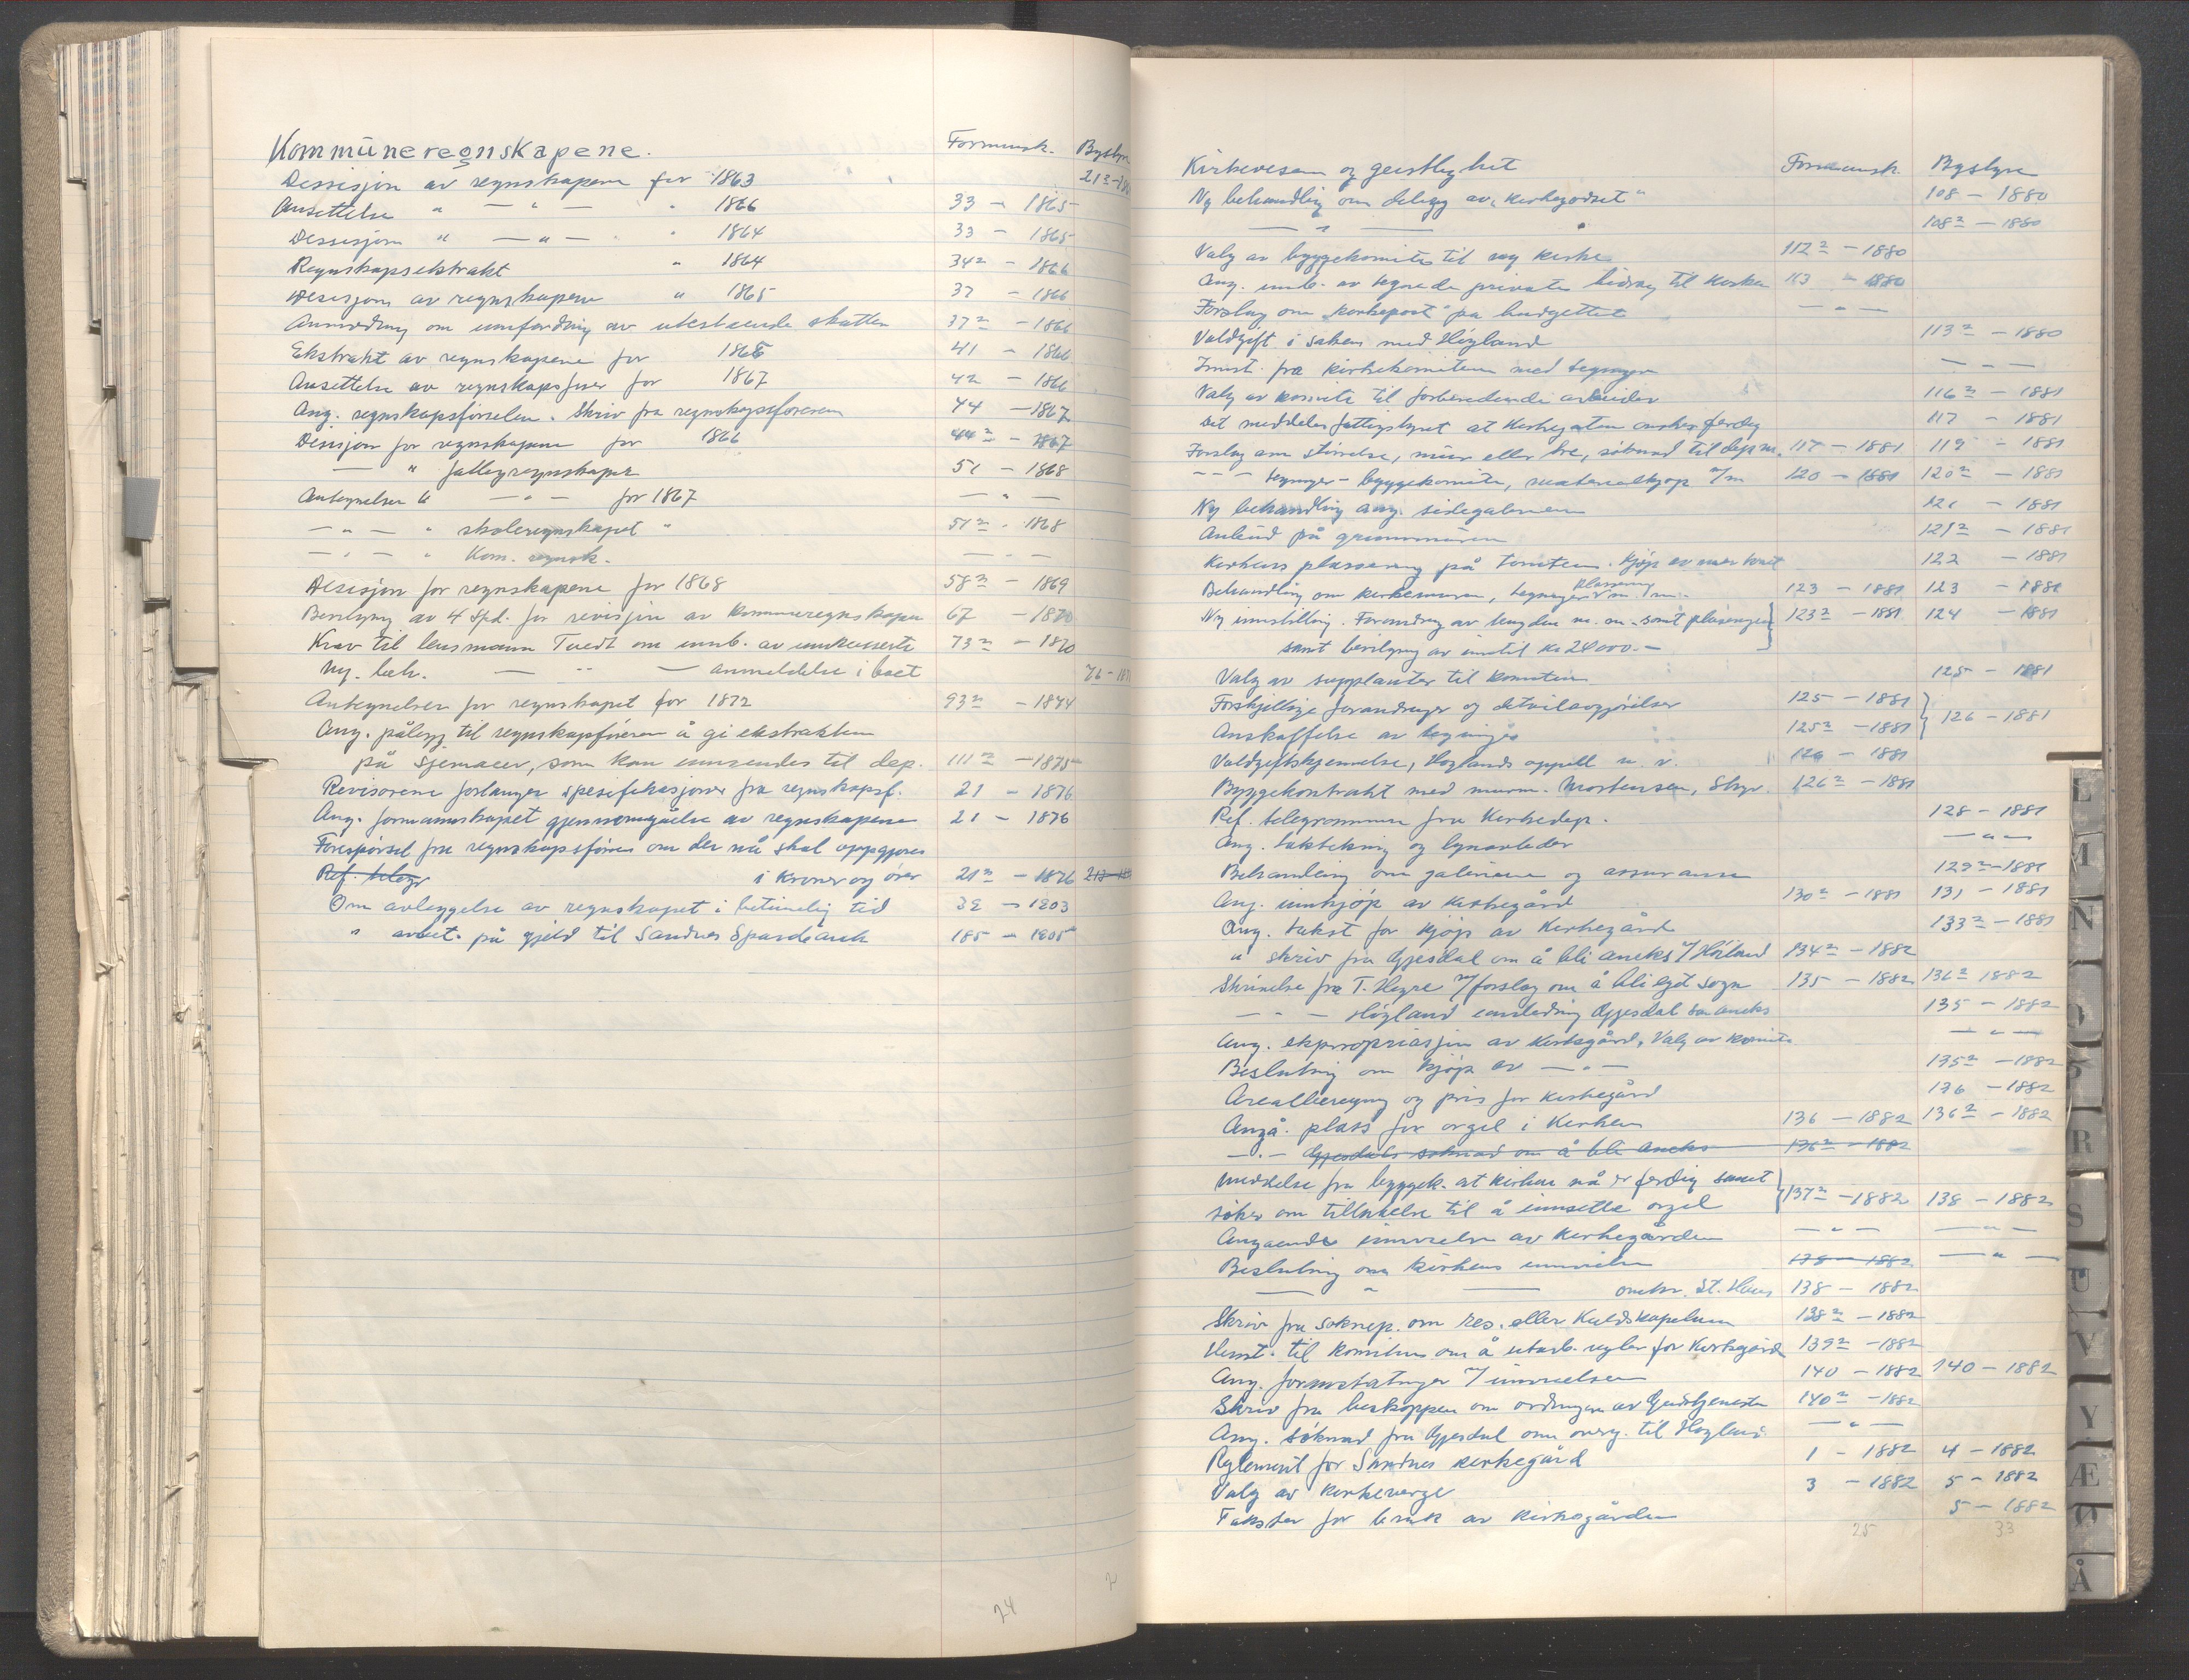 Kommuneregnskapene. Formannsk. Bystyre
Dessisjon av regnskapene for 1863 21²-18
Ansettelse " — " — " 1866 33 - 1865
Dessisjon " — " — " 1864 33 - 1865
Regnskapsekstrakt " 1864 34² - 1866
Desisjon av regnskapene " 1865 37 - 1866
Anmodning om innfordring av utestaaende skatter 37² - 1866
Ekstrakt av regnskapene for 1865 41 - 1866
Ansettelse av regnskapsfører for 1867 42 - 1866
Ang. regnskapsførselen. Skriv fra regnskapsføreren 44 - 1867
Desisjon for regnskapene for 1866 44² - 1867
— " fattigregnskapen 51 - 1868
Antegnelser til — " — for 1867 — " —
— " — " skoleregnskapet " 51² - 1868
— " — " Kom. regnsk. — " —
Desisjon for regnskapene for 1868 58² - 1869
Bevilgning av 4 Spd. for revisjon av kommuneregnskapen 67 - 1870
Krav til lensmann Tvedt om innb. av innkasserte 73² - 1870
Ny. beh. — " — anmeldelse i boet 76 - 187
Antegnelser for regnskapet for 1872 93² - 1874
Ang. pålegg til regnskapsføreren å gi ekstrakten
på sjemaer, som kan innsendes til dep. 111² - 1875
Revisorene forlanger spesifikasjoner fra regnskapsf. 21 - 1876
Ang. formannskapet gjennemgåelse av regnskapene 21 - 1876
Forespørsel fra regnskapsføreren om der nå skal oppgjøres
Ref. telegr i kroner og ører 21² - 1876 212
Om avleggelse av regnskapet i betimelig tid 32 - 1903
" på gjeld til Sandnes Sparebank 185 - 1905
24 2
Kirkevesen og geistlighet Formannsk. Bystyre
Ny behandling om delegg av "Kirkegodset" 108 - 1880
— " — 108² - 1880
Valg av byggekomite til ny kirke 112² - 1880
Ang. innb. av tegnede private bidrag til kirken 113 - 1880
Forslag om "kirkepost" på budgettet — " —
Voldgift i saken med Høgland 113² - 1880
Innst. fra kirkekomiteen med tegninger — " —
Valg av komite til forberedende arbeider 116² - 1881
Det meddeles fattigstyret at Kirkegaten ønskes ferdig 117 - 1881
Forslag om størrelse, mur eller tre, søknad til dep m. 117 - 1881 119 - 1881
— " — tegninger - byggekomite, materialkjøp m/m 120 - 1881 120² - 1881
Ny behandling ang. sidegaleriene 121 - 1881
Anbud på grunnmuren 121² - 1881
Kirkens plassering på tomten. Kjøp av mer tomt 122 - 1881
Behandling om kirkemuren, tegninger plassering m. m. 123 - 1881 123 - 1881
Ny innstilling. Forandring av lengden m. m. samt plaseringen 123² - 1881 124 - 1881
samt bevilgning av inntil kr 24000.-
Valg av supplanter til komiteen 125 - 1881
Forskjellige forandringer og detailavgjørelser 125 - 1881 126 - 1881
Anskaffelse av tegninger 125² - 1881
Voldgiftskjennelse, Høglands appell m. v. 126 - 1881
Byggekontrakt med murm. Mortensen, Stvgr. 126² - 1881
Ref. telegrammer fra Kirkedep. 128 - 1881
Ang. taktekning og lynavleder — " —
Behandling om galeriene og assuranse 129² - 1881
Ang. innkjøp av kirkegård 130² - 1881 131 - 1881
Ang. takst for kjøp av kirkegård 133² - 1881
" skriv fra Gjesdal om å bli aneks t/Høiland 134² - 1882
Skrivelse fra T. Høyre m/forslag om å bli eget sogn 135 - 1882 136² 1882
— " — Høgland Gjesdal som aneks 135 - 1882
Ang. ekspropriasjon av kirkegård, Valg av komite — " —
Beslutning om kjøp av — " — 135² - 1882
Arealberegning og pris for kirkegård 136 - 1882
Angå. plass for orgel i kirken 136 - 1882 136² - 1882
— " — Gjesdals søknad om å bli aneks 136² - 1882
Meddelse fra byggek. at kirken nå er ferdig samt 137² - 1882 138 - 1882
søker om tillatelse til å innsette orgel
Angaaende innvielse av kirkegården — " — — " —
Beslutning om kirkens innvielse 138 - 1882 — " —
— " — omkr. St. Hans 138 - 1882
Skriv fra soknep. om res. eller Kaldskapelan 138² - 1882
Henst. til komiteen om å utarb. regler for Kirkegård 139² - 1882
Ang. foranstatninger v/ innvielsen 140 - 1882 140 - 1882
Skriv fra biskoppen om ordningen av Gudstjenesten 140² - 1882
Ang. søknad fra Gjesdal om overg. til Høgland — " —
Reglement for Sandnes kirkegård 1 - 1882 4 - 1882
Valg av kirkeverge 3 - 1882 5 - 1882
Takster for bruk av kirkegården 5 - 1882
25 33
L
M
N
O
R
S
U
V
Y
Æ
Ø
Å